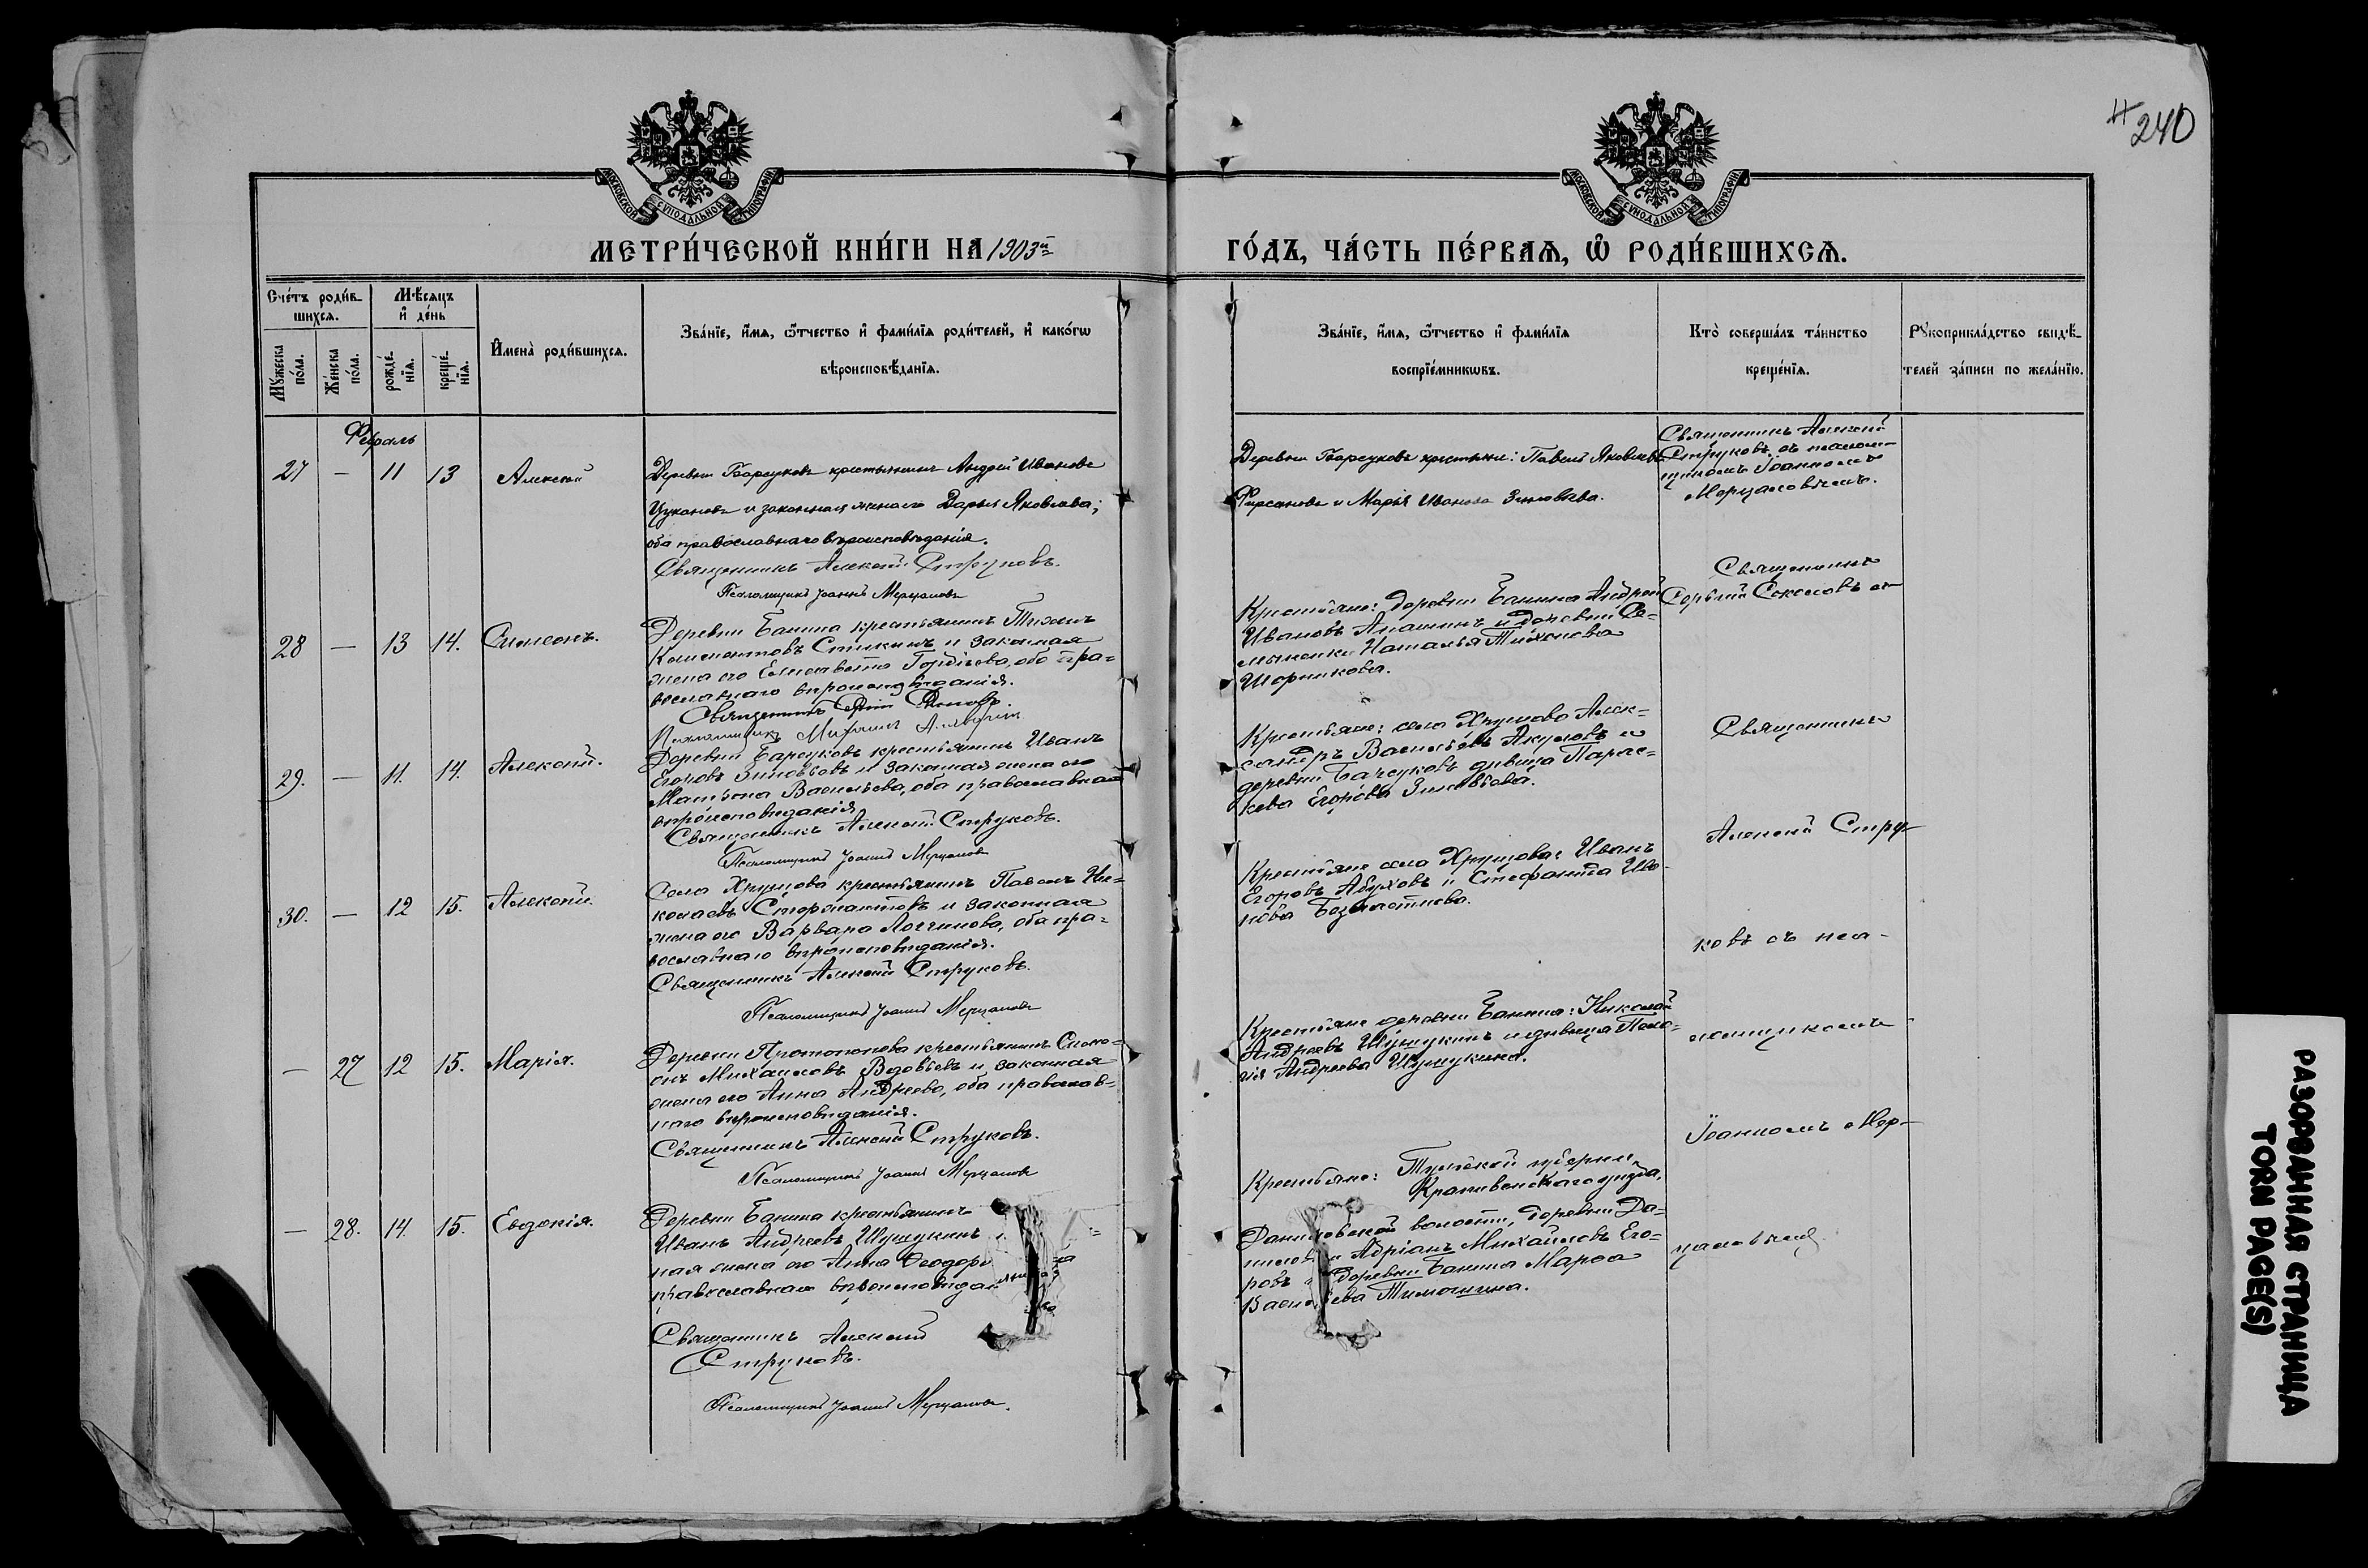 240
МОСКОВСКОЙ СУНОДАЛЬНОЙ ТИПОГРАФІИ
МОСКОВСКОЙ СУНОДАЛЬНОЙ ТИПОГРАФІИ
МЕТРИ́ЧЕСКОЙ КНИ́ГИ НА 1903й
ГО́ДЪ, ЧА́СТЬ ПЕ́РВАѦ, Ѡ҆ РОДИ́ВШИХСѦ.
Сче́тъ роди́в-
шихсѧ.
Мꙋ́жеска по́ла.
Же́нска по́ла.
Мѣ́сѧцъ
и҆ де́нь
рожде́-нїѧ.
креще́-нїѧ.
И҆мена̀ роди́вшихсѧ.
Зва́нїе, и҆́мѧ, ѻ҆́тчество и҆ фами́лїѧ роди́телей, и҆ како́гѡ
вѣроисповѣ́данїѧ.
Зва́нїе, и҆́мѧ, ѻ҆́тчество и҆ фами́лїѧ
воспрїе́мникѡвъ.
Кто̀ соверша́лъ та́инство
креще́нїѧ.
Рꙋкоприкла́дство свидѣ́-
телей за́писи по жела́нїю.
Февраль
27 — 11 13 Алексѣй
Деревни Барсуковъ крестьянинъ Андрей Ивановъ
Цукановъ и законная жена его Дарья Яковлева;
оба православнаго вѣроисповѣданія.
Священникъ Алексѣй Струковъ.
Псаломщикъ Іоаннъ Мерцаловъ
Деревни Барсуковъ крестьяне: Павелъ Яковлевъ
Фирсановъ и Марія Иванова Зиновьева.
Священникъ Алексѣй
Струковъ съ псалом-
щикомъ Іоанномъ
Мерцаловымъ.
28 — 13 14. Симеонъ.
Деревни Банина крестьянинъ Тихонъ
Климентовъ Стикинъ и законная
жена его Елисавета Гордѣева, оба пра=
вославнаго вѣроисповѣданія.
Священникъ
Псаломщикъ Михаилъ
Крестьяне: деревни Банина Андрей
Ивановъ Анашинъ и деревни Се-
мыкенки Наталья Тихонова
Шорникова.
Священникъ
Сергій Соколовъ съ
29. — 11. 14. Алексѣй.
Деревни Барсуковъ крестьянинъ Иванъ
Егоровъ Зиновьевъ и законная жена его
Матрона Васильева, оба православнаго
вѣроисповѣданія
Священникъ Алексѣй Струковъ.
Псаломщикъ Іоаннъ Мерцаловъ
Крестьяне: села Хрущово Алек-
сандръ Васильевъ Акуловъ и
деревни Барсуковъ дѣвица Парас-
кева Егорова Зиновьева.
Священникъ
30. — 12 15. Алексѣй.
Села Хрущова крестьянинъ Павелъ Ни-
колаевъ Сторожантовъ и законная
жена его Варвара Логгинова, оба пра-
вославнаго вѣроисповѣданія.
Священникъ Алексѣй Струковъ.
Псаломщикъ Іоаннъ Мерцаловъ
Крестьяне села Хрущова: Иванъ
Егоровъ Абуховъ и Стефанида Ива-
нова Безпятнова.
Алексѣй Стру-
ковъ съ пса-
— 27 12 15. Марія.
Деревни Протопопова крестьянинъ Симе-
онъ Михаиловъ Вдовьевъ и законная
жена его Анна Андреева, оба православ-
наго вѣроисповѣданія.
Священникъ Алексѣй Струковъ.
Псаломщикъ Іоаннъ Мерцаловъ
Крестьяне деревни Банина: Николай
Андреевъ Шушукинъ и дѣвица Пела-
гія Андреева Шушукина.
ломщикомъ
Іоанномъ Мер-
— 28. 14. 15. Евдокія.
Деревни Банина крестьянинъ
Иванъ Андреевъ Шушукинъ
ная жена его Анна Ѳеодоро
православнаго вѣроисповѣдан
Священникъ Алексѣй
Струковъ.
Псаломщикъ Іоаннъ Мерцаловъ.
Крестьяне: Тульской губерніи,
Крапивенскаго уѣзда,
Даниловской волости, деревни Да-
нилов Адріанъ Михайловъ Его-
ровъ и деревни Банина Марѳа
Васильева Тимошина.
цаловымъ
РАЗОРВАННАЯ СТРАНИЦА
TORN PAGE(S)